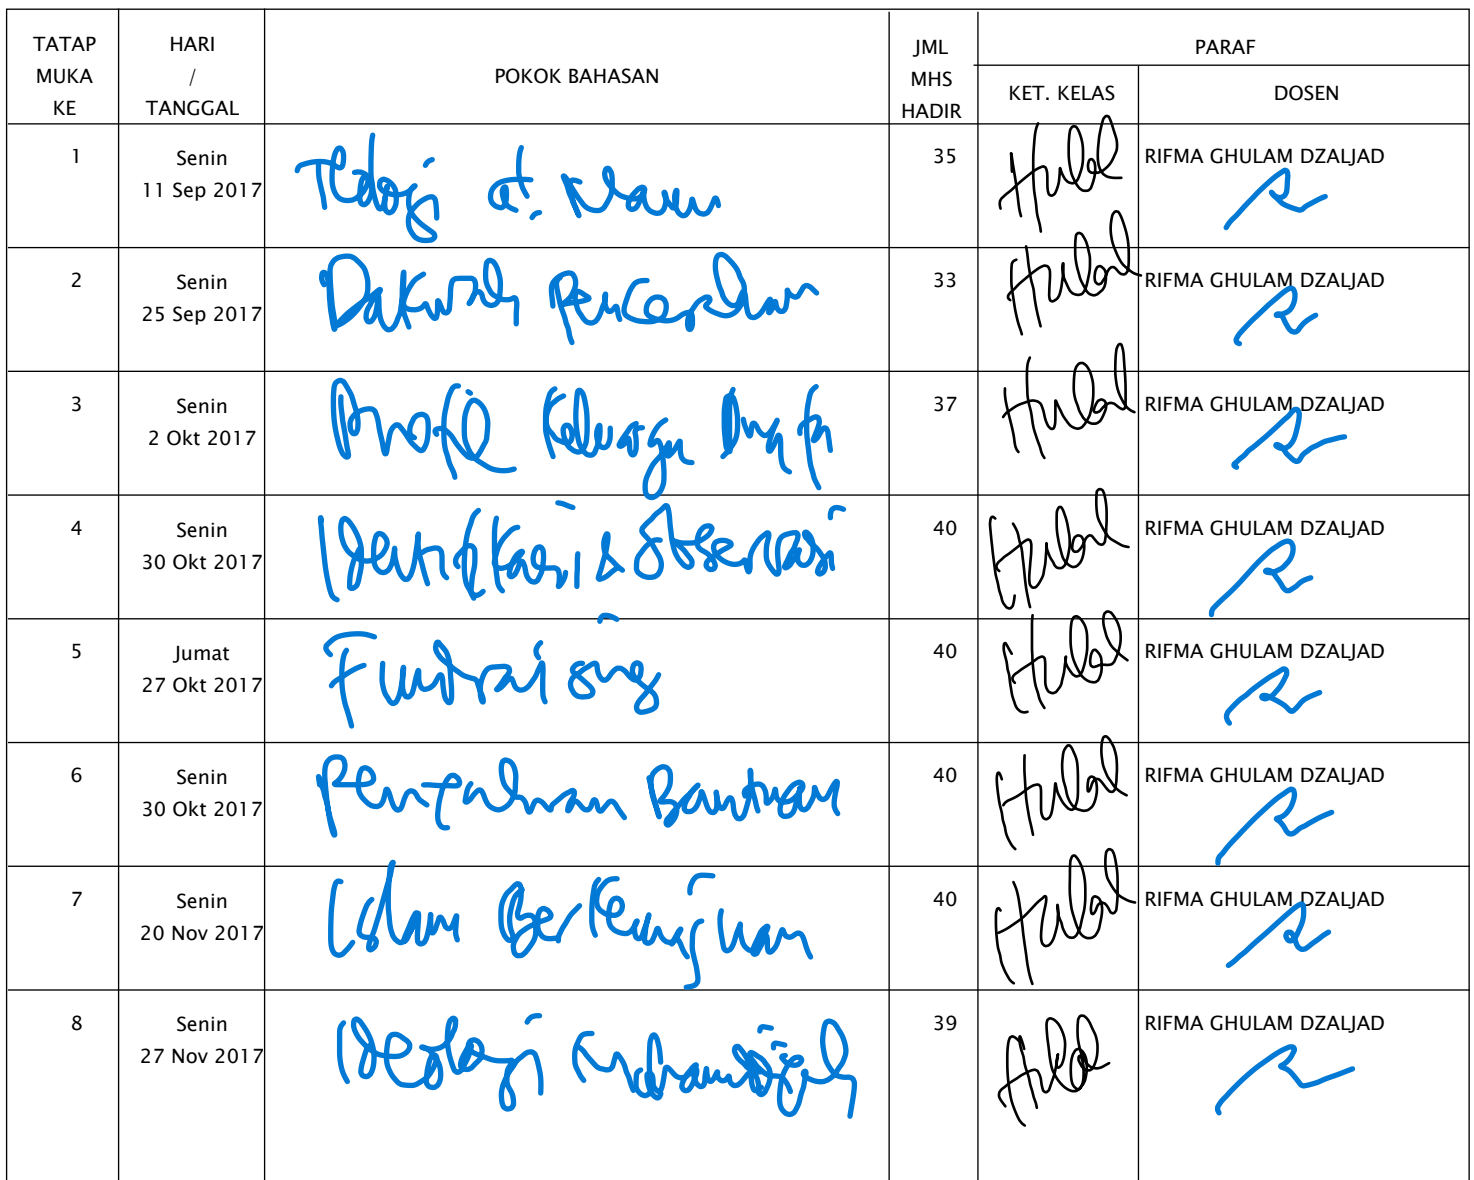 TATAP MUKA KE
HARI / TANGGAL
POKOK BAHASAN
JML MHS HADIR
PARAF
KET. KELAS
DOSEN
1 Senin 11 Sep 2017 Teologi al. Maun 35 RIFMA GHULAM DZALJAD
2 Senin 25 Sep 2017 Dakwah Pencerahan 33 RIFMA GHULAM DZALJAD
3 Senin 2 Okt 2017 Profil Keluarga Duafa 37 RIFMA GHULAM DZALJAD
4 Senin 30 Okt 2017 Identifikasi & Observasi 40 RIFMA GHULAM DZALJAD
5 Jumat 27 Okt 2017 Fundraising 40 RIFMA GHULAM DZALJAD
6 Senin 30 Okt 2017 Bantuan 40 RIFMA GHULAM DZALJAD
7 Senin 20 Nov 2017 Islam Berkemajuan 40 RIFMA GHULAM DZALJAD
8 Senin 27 Nov 2017 Ideologi Muhammadiyah 39 RIFMA GHULAM DZALJAD